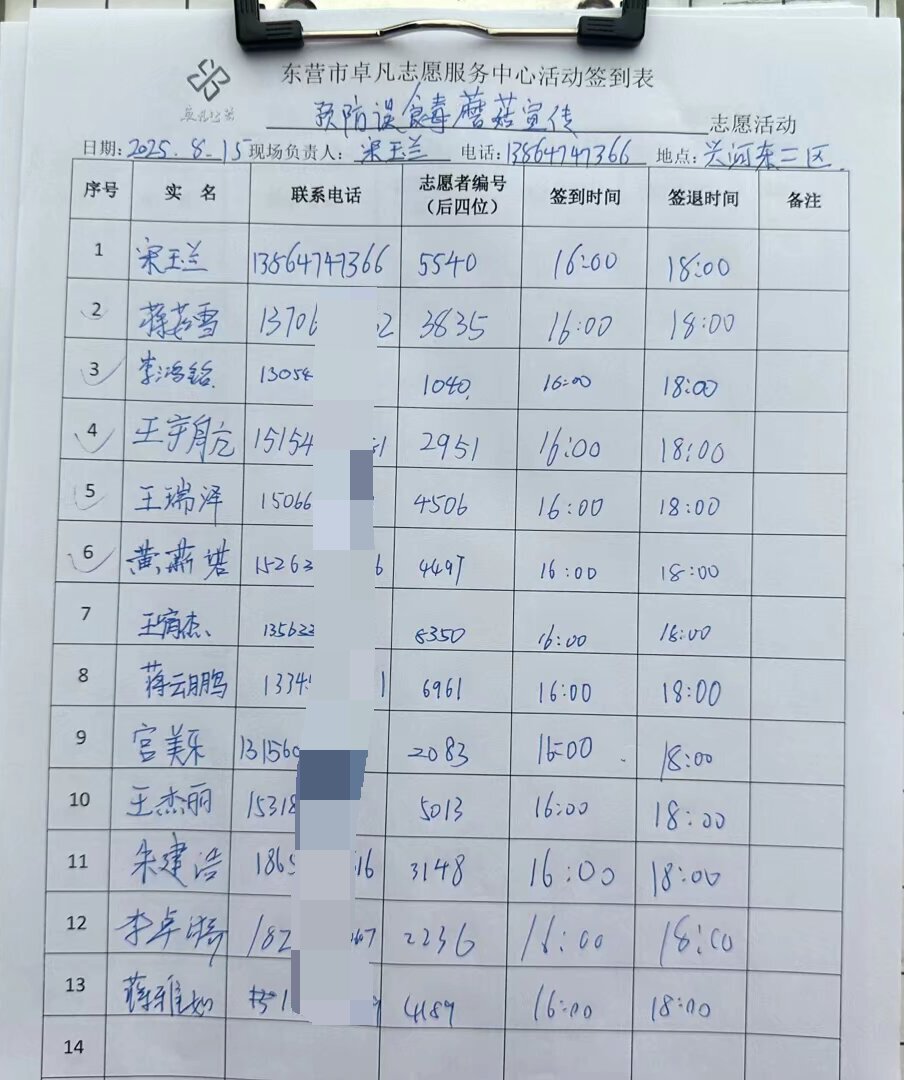 东营市卓凡志愿服务中心活动签到表
卓凡公益
预防误食毒蘑菇宣传 志愿活动
日期:2025.8.15 现场负责人:宋玉兰 电话:13864747366 地点:兴河东二区
序号 实 名 联系电话 志愿者编号（后四位） 签到时间 签退时间 备注
1 宋玉兰 13864747366 5540 16:00 18:00
2 蒋茹雪 1370 2 3835 16:00 18:00
3 李鸿铭 13054 1040 16:00 18:00
4 王宇航 15154 51 2951 16:00 18:00
5 王瑞泽 15066 4506 16:00 18:00
6 黄萧诺 15263 6 4497 16:00 18:00
7 王宥杰 135623 8350 16:00 18:00
8 蒋云鹏 1334 1 6961 16:00 18:00
9 宫美乐 131560 2083 16:00 18:00
10 王杰丽 15318 5013 16:00 18:00
11 朱建浩 186 16 3148 16:00 18:00
12 李卓 182 07 2236 16:00 18:00
13 蒋雅如 4189 16:00 18:00
14